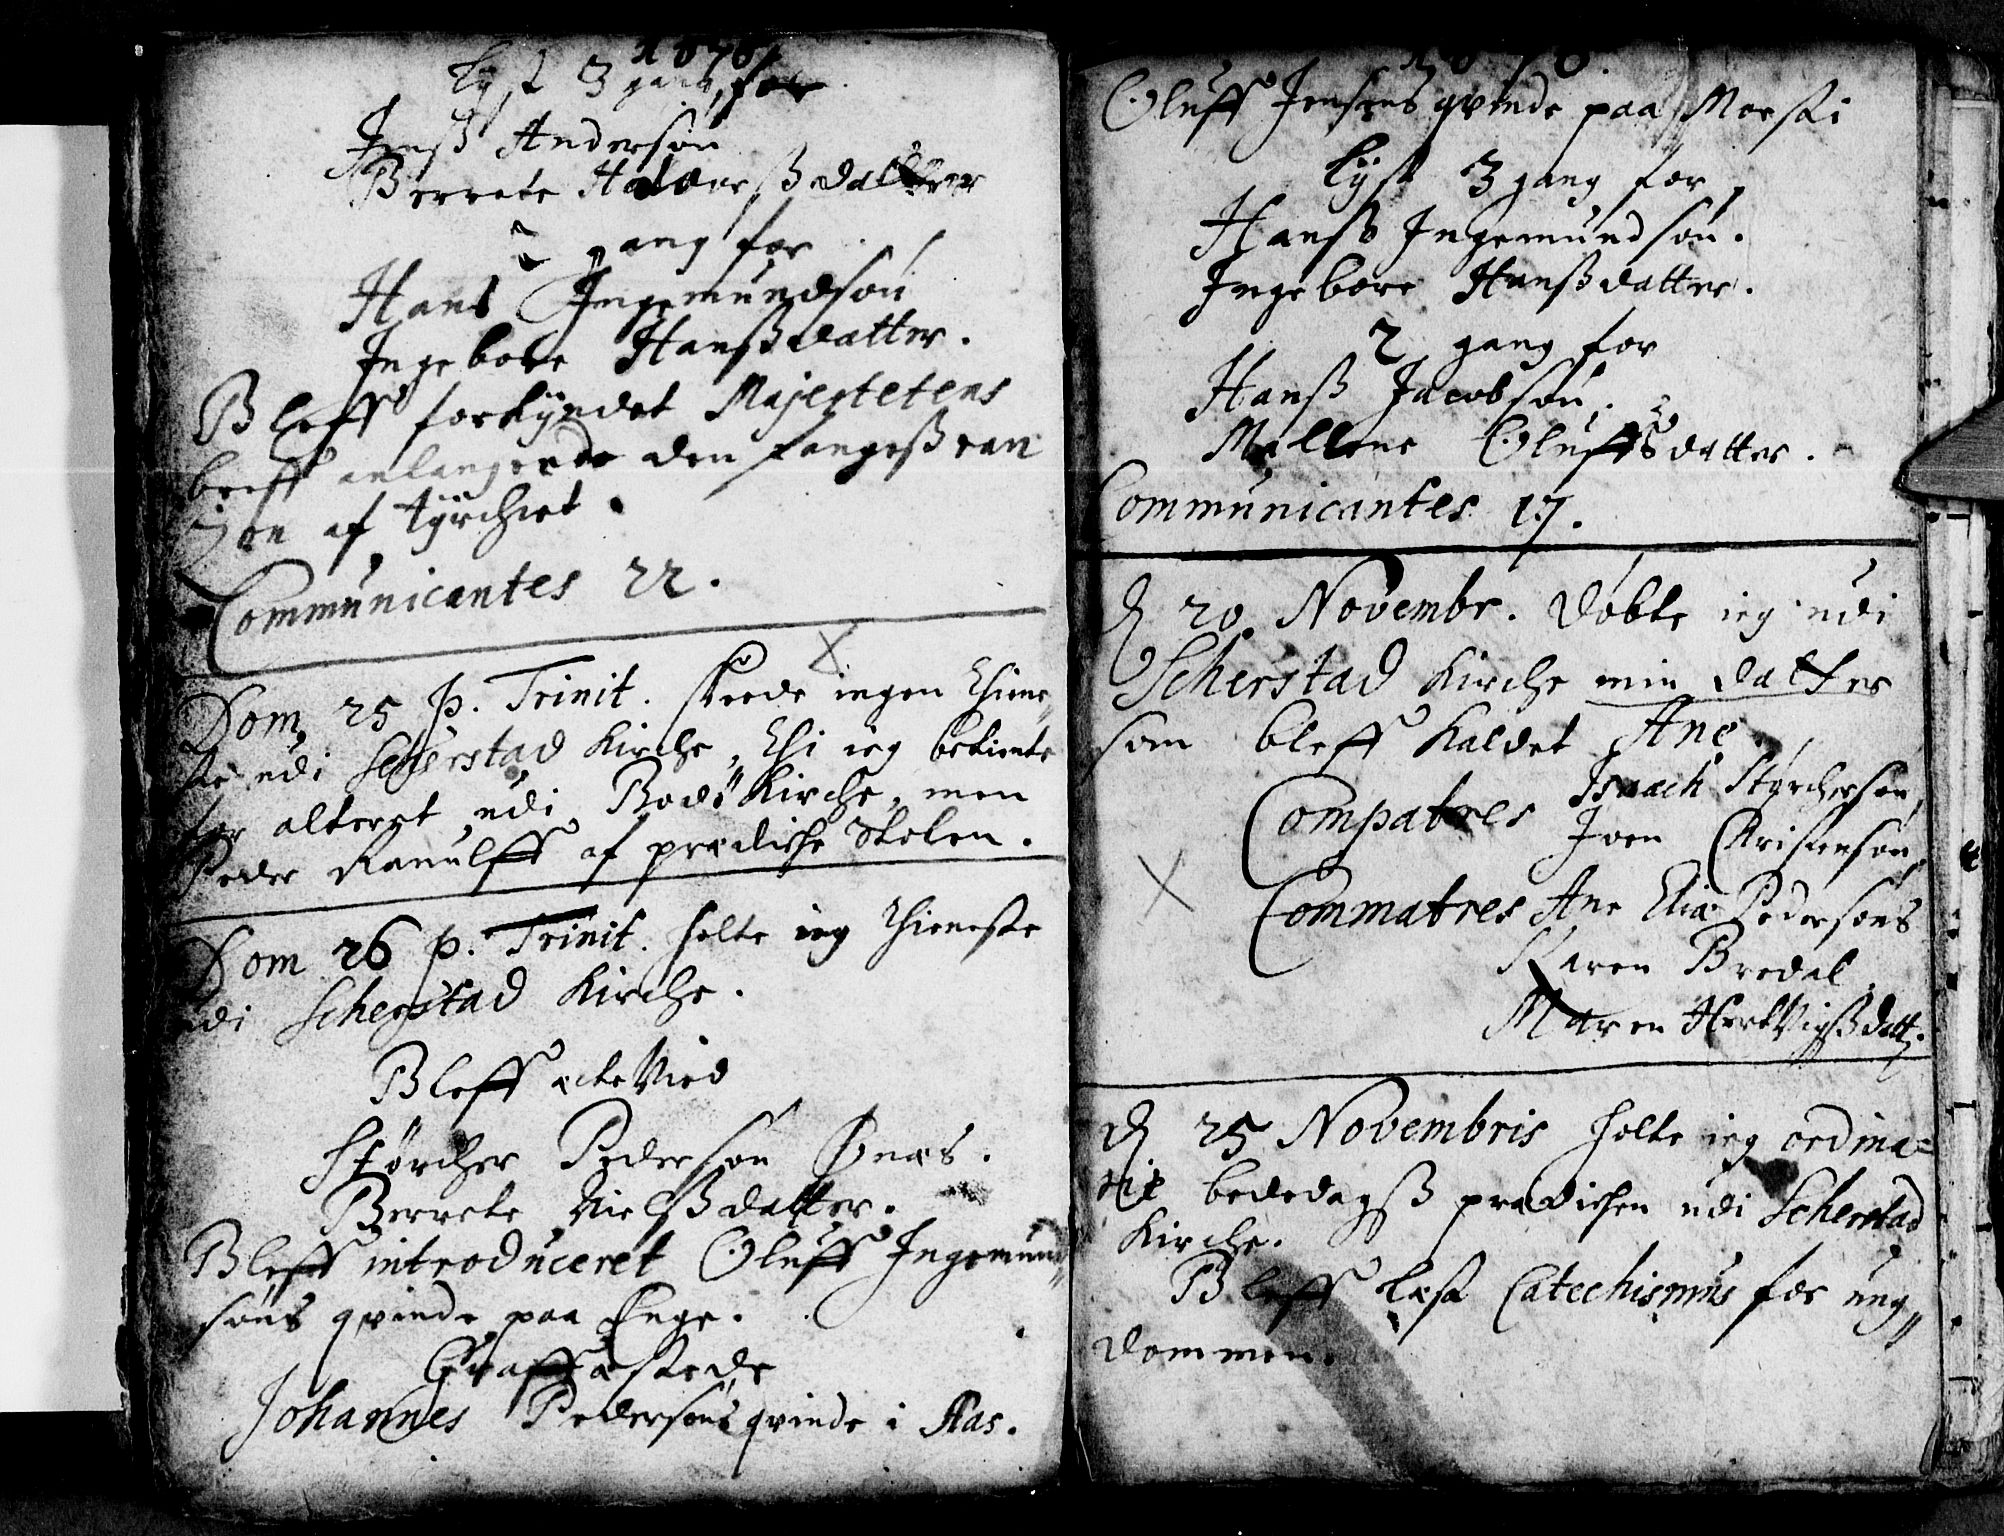 1670
Lyst 3 gang for
Jenß Andersøn
Berrete Halduerßdatter
2 gang for
Hans Ingemundsøn
Ingebore Hanßdatter.
Bleff forkyndet Majestetens
breff anlangende den fangeß ran
zon af tyrchiet.
Communicantes 22.
Dom. 25 p. Trinit. skeede ingen thiene„
ste udi Scherstad Kirche, thi ieg betiente
for alteret udi Bodø Kirche, men
Peder Ranulff af prædiche Stolen.
Dom 26 p. Trinit. holte ieg thieneste
udi Scherstad Kirche.
Bleff ecte Vied
Størcher Pedersøn Øenes.
Berrete Nielßdatter.
Bleff introduceret Oluff Ingemund„
søns qvinde paa Enge.
Graff æstede
Johannes Pedersøns qvinde i Aas.
1670
Oluff Jensøns qvinde paa Morski
Lyst 3 gang for
Hanß Ingemundsøn.
Ingebore Hanßdatter.
2 gang for
Hanß Jacobsøn.
Mallene Oluffsdatter.
Communicantes 17.
D 20 Novembr. døbte ieg udi
Scherstad Kirche min datter
som bleff kaldet Ane
Compatres Isaach Størchersøn,
Joen Christensøn,
Commatres Ane Eliæ Pedersøns
Karen Bredal
Maren HertVigßdatt.
D 25 Novembris holte ieg ordina=
rie bededagß prædichen udi Scherstad
Kirche.
Bleff læst Catechismus for ung„
dommen.